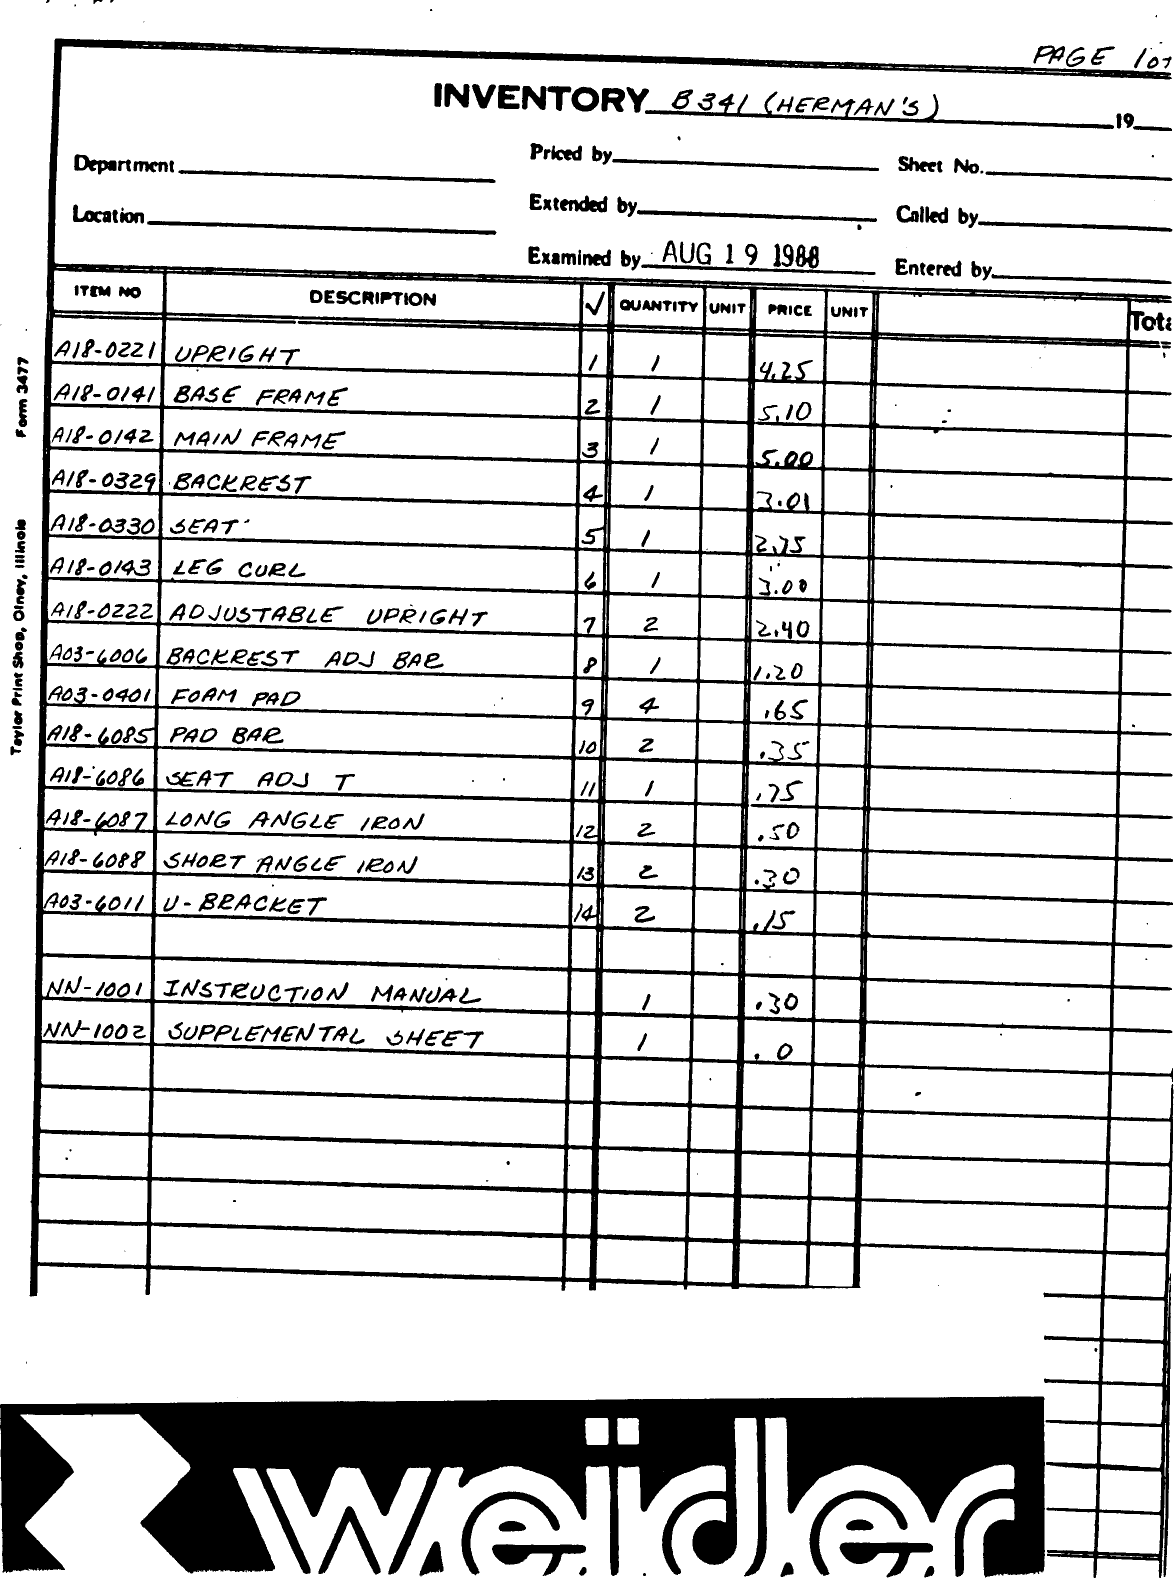 PAGE 1 of
INVENTORY B341 (HERMAN'S) 19
Department Priced by Sheet No.
Location Extended by Called by
Examined by AUG 19 1988 Entered by
ITEM NO DESCRIPTION √ QUANTITY UNIT PRICE UNIT Tota
A18-0221 UPRIGHT 1 1 4.25
A18-0141 BASE FRAME 2 1 5.10
A18-0142 MAIN FRAME 3 1 5.00
A18-0329 BACKREST 4 1 3.01
A18-0330 SEAT 5 1 2.75
A18-0143 LEG CURL 6 1 3.00
A18-0222 ADJUSTABLE UPRIGHT 7 2 2.40
A03-6006 BACKREST ADJ BAR 8 1 1.20
A03-0401 FOAM PAD 9 4 .65
A18-6085 PAD BAR 10 2 .35
A18-6086 SEAT ADJ T 11 1 .75
A18-6087 LONG ANGLE IRON 12 2 .50
A18-6088 SHORT ANGLE IRON 13 2 .30
A03-6011 U-BRACKET 14 2 .15
NN-1001 INSTRUCTION MANUAL 1 .30
NN-1002 SUPPLEMENTAL SHEET 1 .0
Taylor Print Shop, Olney, Illinois Form 3477
weider